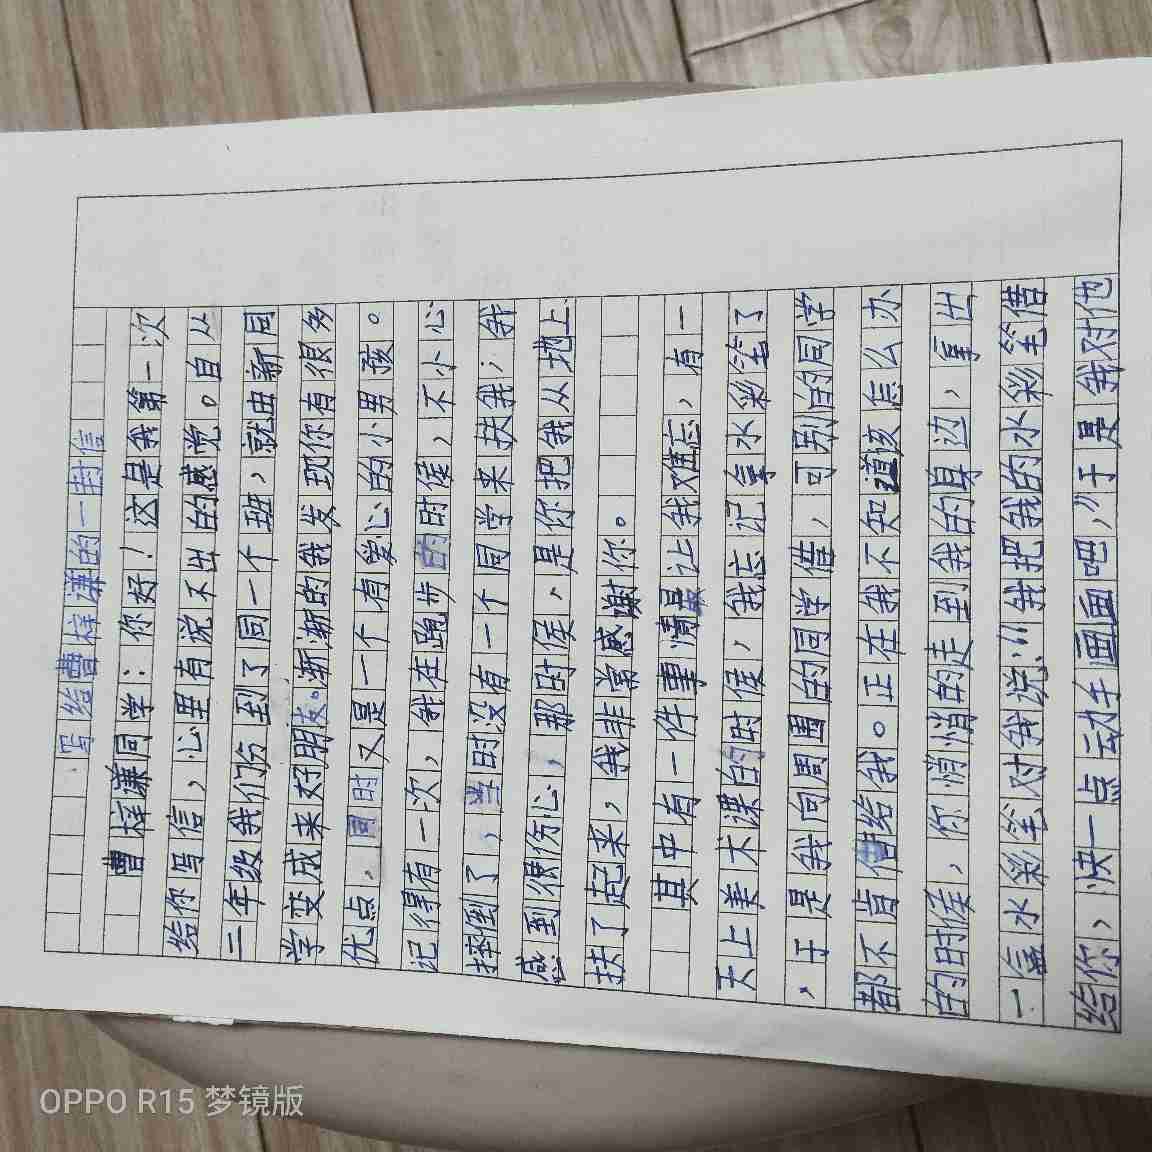 写给曹梓濂的一封信
曹梓濂同学：你好！这是我第一次
给你写信，心里有说不出的感觉。自从
二年级我们份到了同一个班，就由新同
学变成来好朋友。渐渐的我发现你有很多
优点，同时又是一个有爱心的小男孩。
记得有一次，我在跑步的时侯，不小心
摔倒了，当时没有一个同学来扶我；我
感到很伤心，那时侯，是你把我从地上
扶了起来，我非常感谢你。
其中有一件事情最让我难忘，有一
天上美术课的时侯，我忘记拿水彩笔了
，于是我向周围的同学借，可别的同学
都不肯借给我。正在我不知道该怎么办
的时侯，你悄悄的走到我的身边，拿出
一盒水彩笔对我说：“我把我的水彩笔借
给你，快一点动手画画吧，”于是我对他
OPPO R15 梦镜版